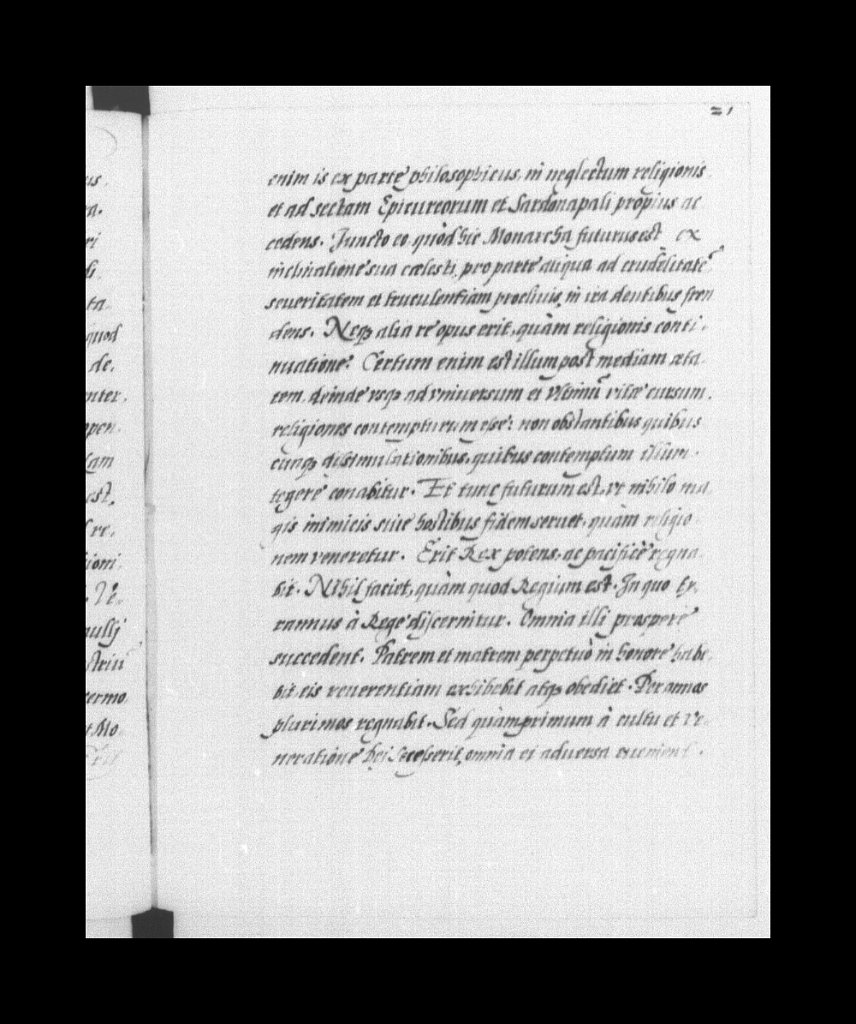 us.
ra.
ri
di.
ta.
quod
de.
nter.
open.
lam
est,
re.
tioni.
Ve.
nullj
striū
termo.
t Mo.
21
enim is ex parte philosophicus, in neglectum religionis
et ad sectam Epicureorum et Sardanapali propius ac
cedens. Juncto eo, quòd hic Monarcha futurus est ex
inclinatione sua cælesti, pro parte aliqua ad crudelitatē
seueritatem et truculentiam procliuis, in ira dentibus fren
dens. Neqȝ alia re opus erit, quàm religionis conti.
nuatione. Certum enim est illum post mediam æta.
tem, deinde usqȝ ad vniuersum et vltimū vitæ cursum.
religiones contempturum esse: non obstantibus quibus
cunqȝ dissimulationibus, quibus contemptum illum.
tegere conabitur. Et tunc futurum est, vt nihilo ma
gis inimicis siue hostibus fidem seruet, quàm religio.
nem veneretur. Erit Rex potens, ac pacificè regna.
bit. Nihil faciet, quàm quod Regium est. In quo Ty.
rannus à Rege discernitur. Omnia illi prosperè
succedent. Patrem et matrem perpetuò in honore habe.
bit eis reuerentiam exhibebit atqȝ obediet. Per annos
plurimos regnabit. Sed quàmprimum à cultu et ve.
neratione Dei secesserit, omnia ei aduersa euenient.